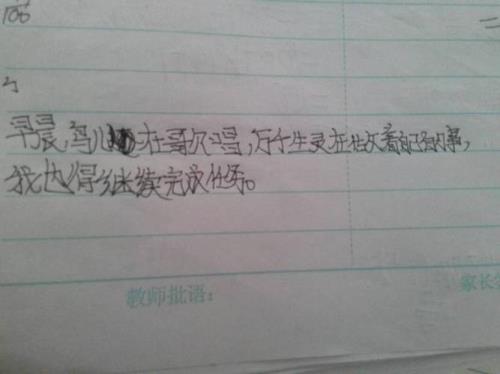 早晨,鸟儿在哥尔鸣,万千生灵在做着自己的事,
我也得继续完成任务。
教师批语:
家长